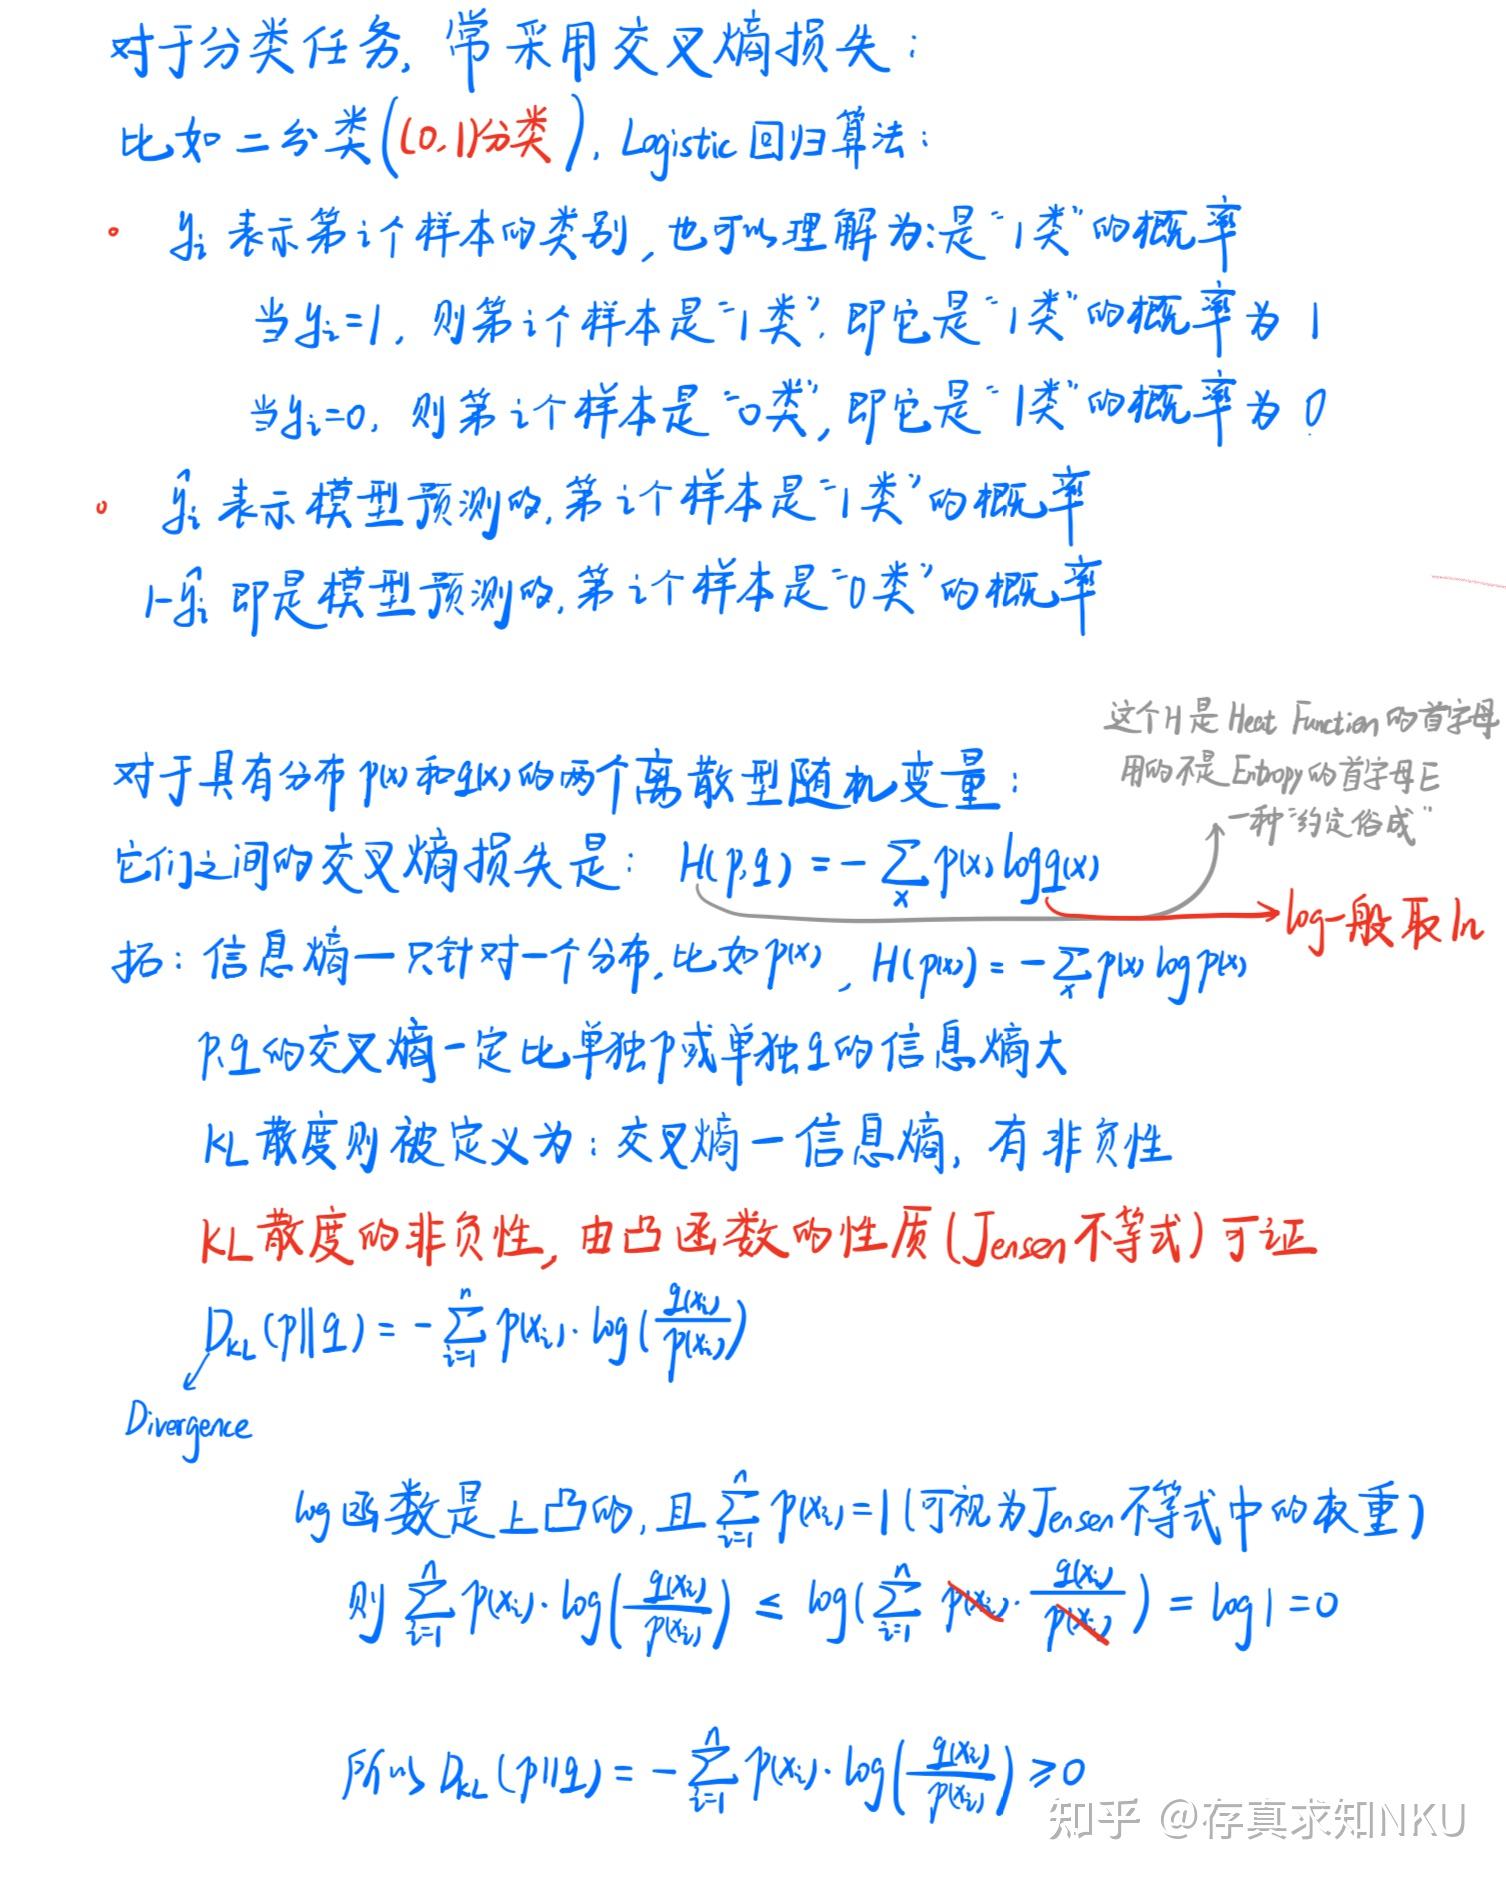 对于分类任务,常采用交叉熵损失:
比如二分类((0,1)分类),Logistic回归算法:
yᵢ 表示第i个样本的类别,也可以理解为:是“1类”的概率
当yᵢ=1,则第i个样本是“1类”,即它是“1类”的概率为 1
当yᵢ=0,则第i个样本是“0类”,即它是“1类”的概率为 0
ŷᵢ 表示模型预测的,第i个样本是“1类”的概率
1-ŷᵢ 即是模型预测的,第i个样本是“0类”的概率
这个H是 Heat Function 的首字母
用的不是Entropy的首字母E
一种“约定俗成”
对于具有分布p(x)和q(x)的两个离散型随机变量:
它们之间的交叉熵损失是: H(p,q) = -∑ₓ p(x) log q(x)
log一般取ln
拓:信息熵—只针对一个分布,比如p(x), H(p(x)) = -∑ₓ p(x) log p(x)
p,q的交叉熵一定比单独p或单独q的信息熵大
KL散度则被定义为:交叉熵-信息熵,有非负性
KL散度的非负性,由凸函数的性质(Jensen不等式)可证
D_KL(p||q) = -∑ⁿᵢ₌₁ p(xᵢ)·log(q(xᵢ)/p(xᵢ))
Divergence
log函数是上凸的,且∑ⁿᵢ₌₁ p(xᵢ)=1(可视为Jensen不等式中的权重)
则 ∑ⁿᵢ₌₁ p(xᵢ)·log(q(xᵢ)/p(xᵢ)) ≤ log(∑ⁿᵢ₌₁ p(xᵢ)·q(xᵢ)/p(xᵢ)) = log1 = 0
所以 D_KL(p||q) = -∑ⁿᵢ₌₁ p(xᵢ)·log(q(xᵢ)/p(xᵢ)) ≥0
知乎 @存真求知NKU